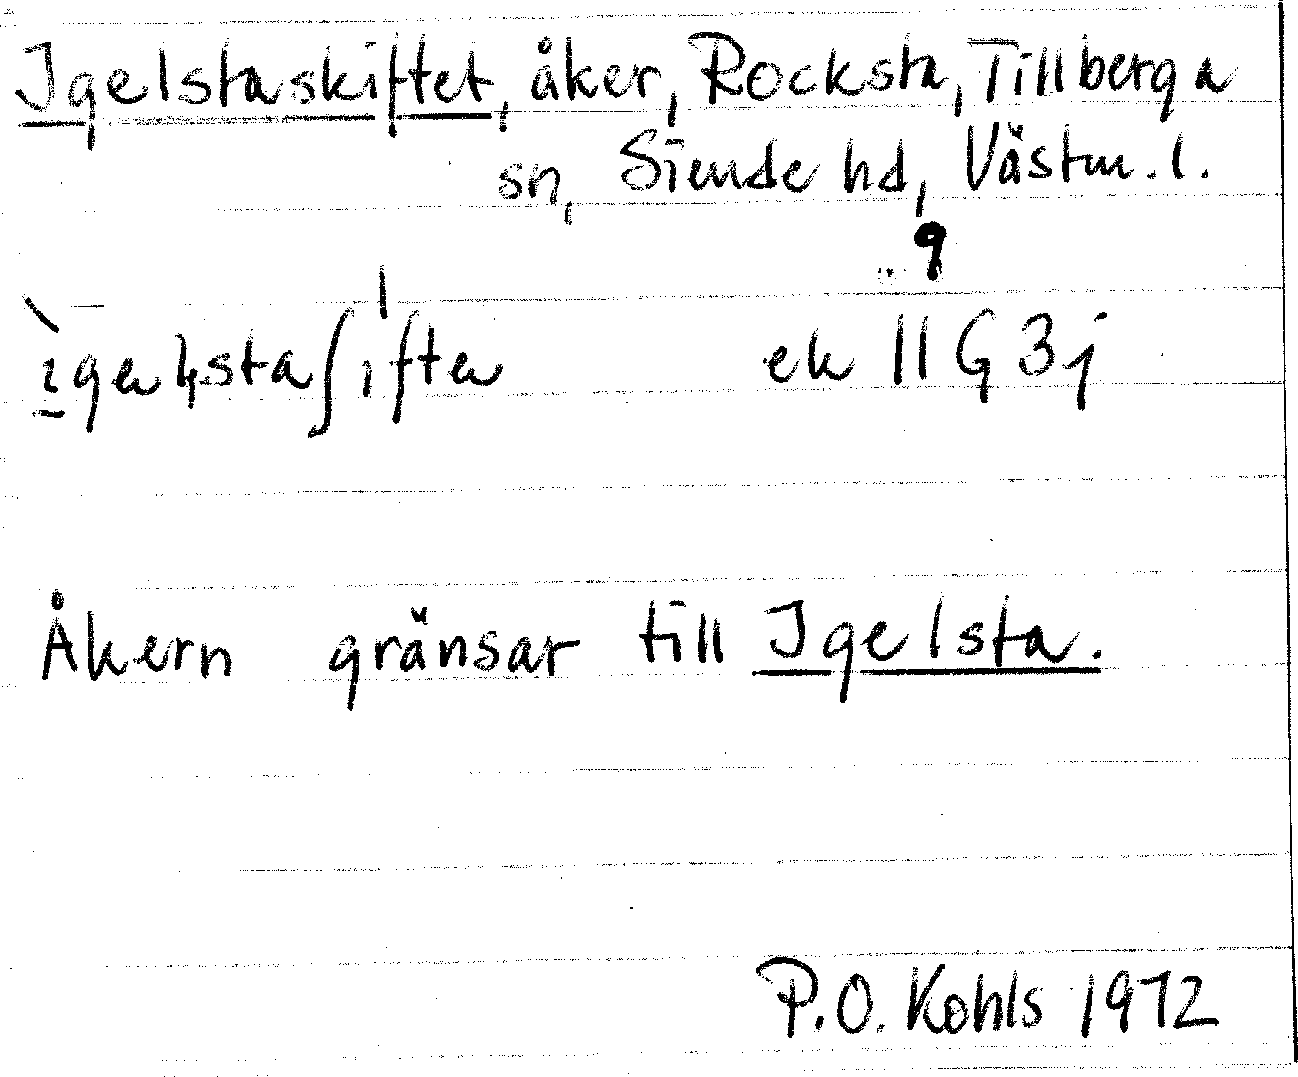 Igelstaskiftet, åker, Rocksta, Tillberga
sn, Siende hd, Västm. l.
9
ek 11G 3j
Åkern gränsar till Igelsta.
P.O. Kohls 1972